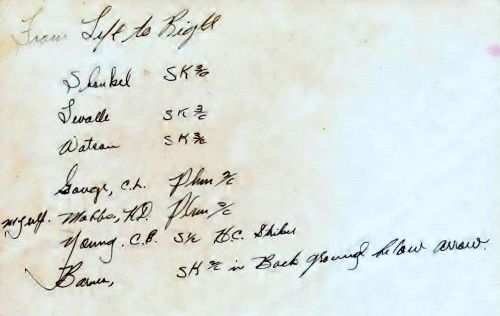 From Left to Right
Shankel SK 3/c
Levalle SK 3/c
Watson SK 3/c
Gouge, C.L. Phm 2/c
myself. Mabbs, H.D. Phm 2/c
Young. C.B. S1/c H.C. Striker
Barnes, SK 3/c in Back ground below arrow.